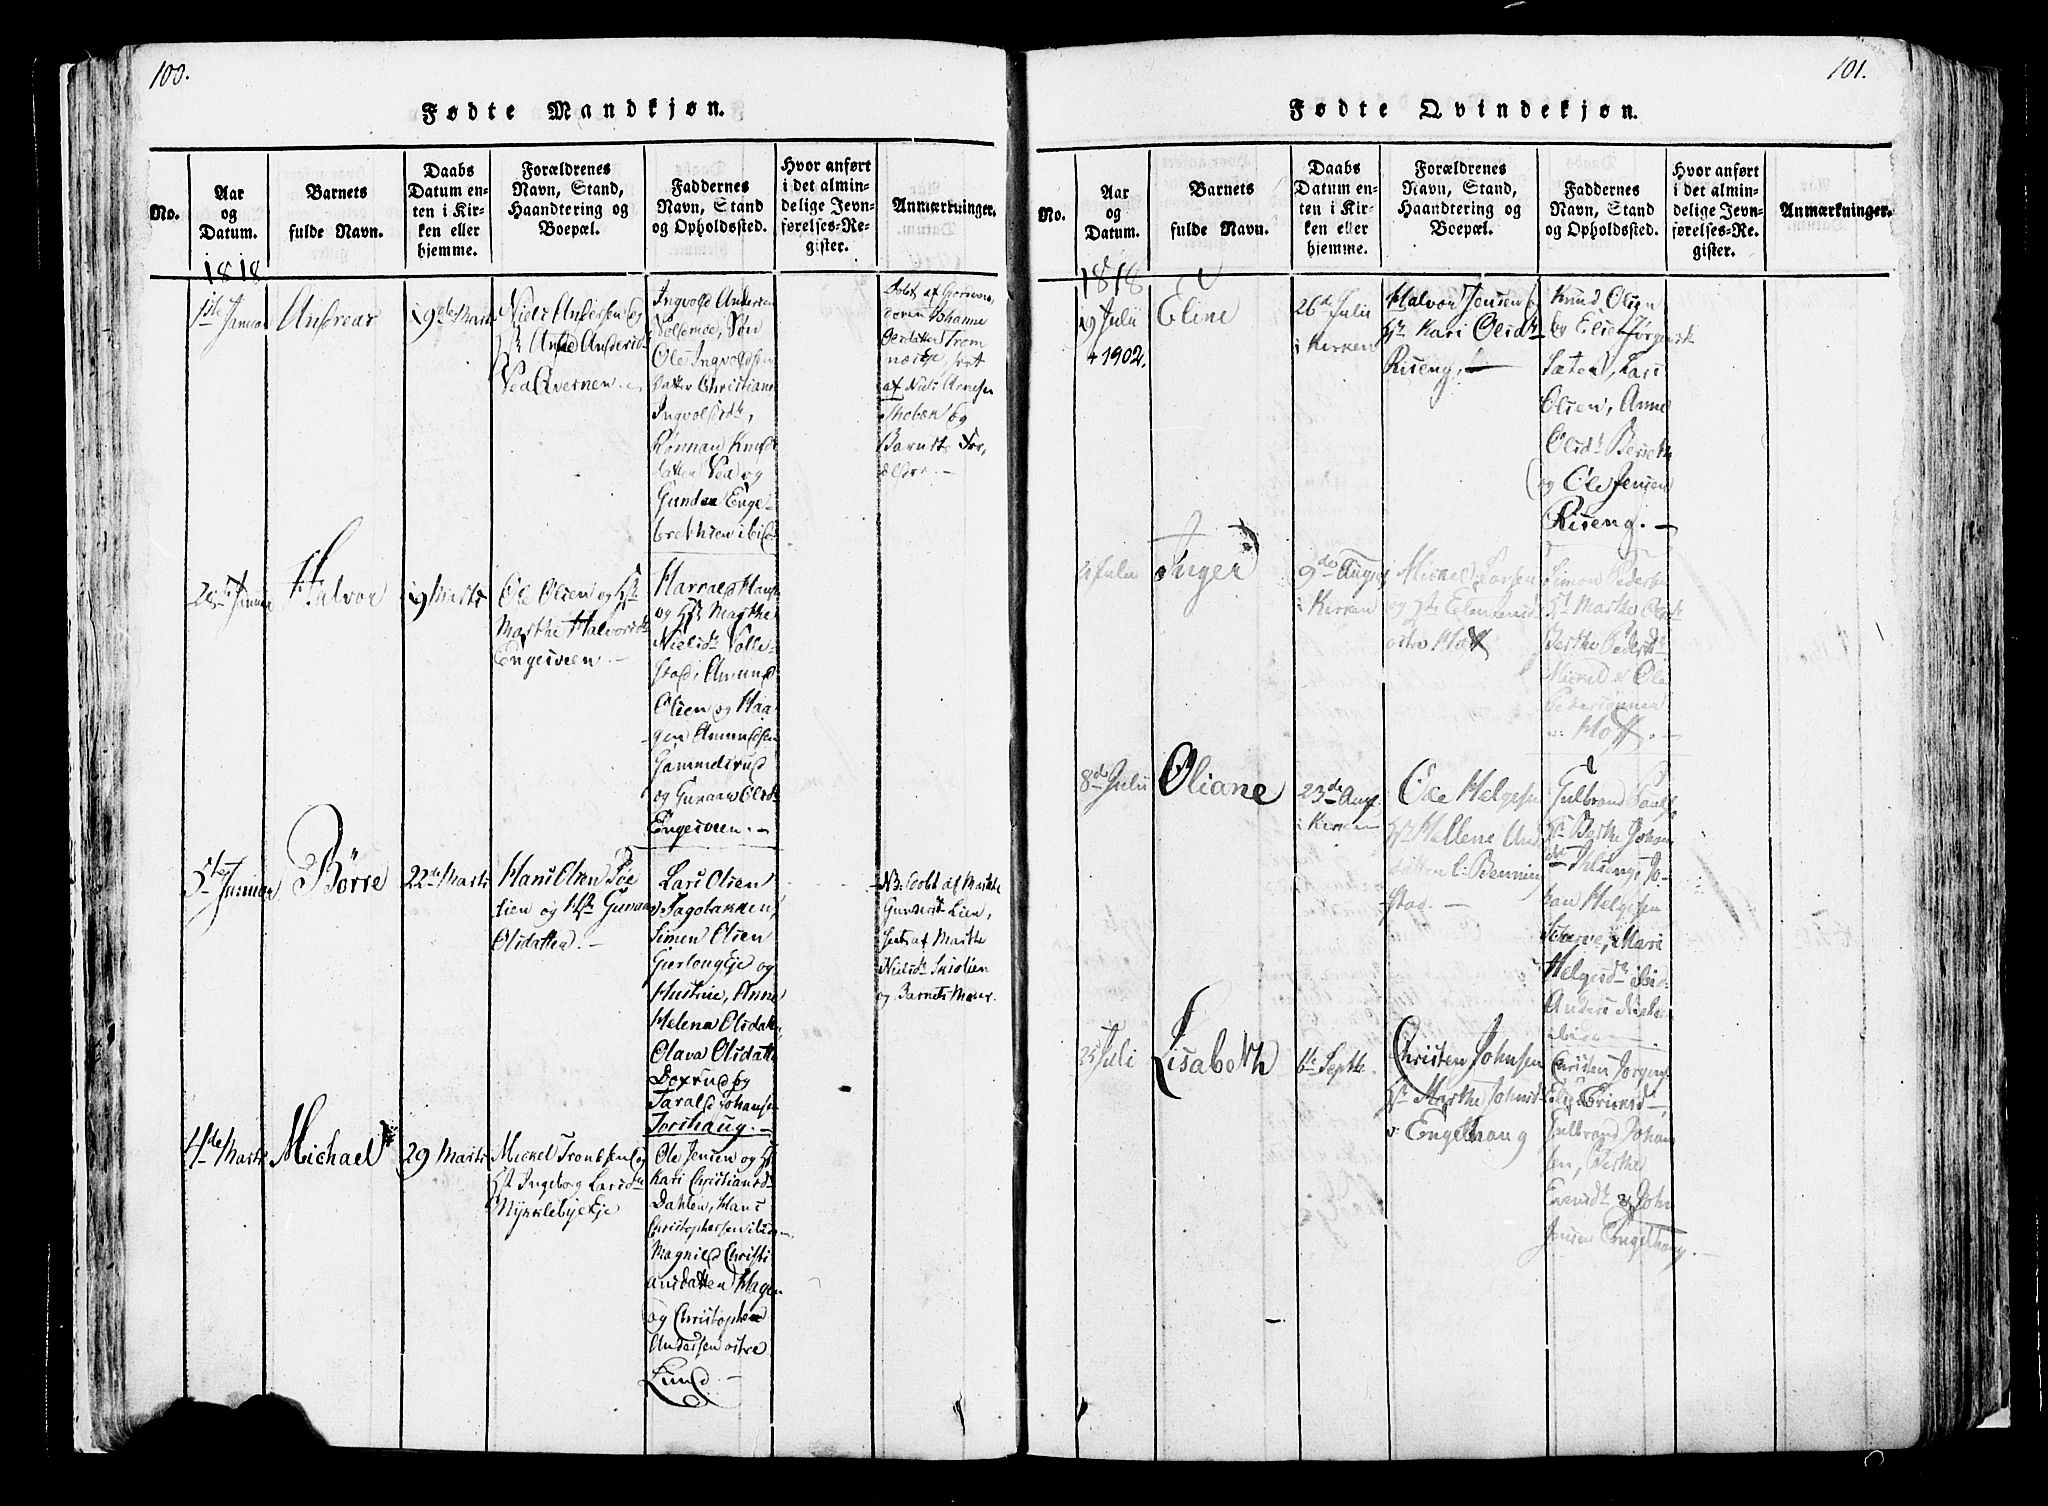 100.
Fødte Mandkjøn.
No.
Aar
og
Datum.
Barnets
fulde Navn.
Daabs
Datum en-
ten i Kir-
ken eller
hjemme.
Forældrenes
Navn, Stand,
Haandtering og
Boepæl.
Faddernes
Navn, Stand
og Opholdssted.
Hvor anført
i det almin-
delige Jevn-
førelses-Re-
gister.
Anmærkninger.
1818
1ste Januar
Andreas
19de Marts
Niels Andersen og
Hst Anne Andersd
Ved Avernen.
Ingvold Andersen
Sollemoe, Søn
Ole Ingvoldsen
Datter Christiane
Ingvolsdtr,
Rønnau Knuds
datter Ved og
Enge-
brethsen ibid
Døbt af Giordemo
deren Johanne
Olsdatter Trom
næs Eje,
af Niels Arnesen
og
Barnets For
ældre.
Januar
Halvor
19 Marts
Ole Olsen og Hst
Marthe Halvorsdtr
Engesveen
Harrald Hans
og Hst Marthe
Nielsdtr Volle-
stad, Amund
Olsen og Haa
gen Amundsen
Gammelsrud
og Gunaar Olsdtr
Engesveen.
5te Januar
Børre
22de Marts
Hans Olsen
lien og Hst Gunaar
Olsdatter.
Lars Olsen
Sagbakken,
Simen Olsen
Gierlong Eje og
Hustrue, Anne
Helena Olsdatter
Olava Olsdatter
Doxrud og
Tarald Johansen
Torshaug.
NB. Døbt af Marthe
Gundersdtr Lien,
af Marthe
Nielsdtr
og Barnets Moder.
4de Marts
Michael
29 Marts
Mickel Trondsen og
Hst Ingeborg Larsdtr
Mykleby Eje
Ole Jensen og Hst
Kari Christiansdtr
Dahlen, Hans
Christophersen ibid
Magnild Christi
ansdatter Hagen
og Christopher
Andersen østre
Lund.
101.
Fødte Qvindekjøn.
No.
Aar
og
Datum.
Barnets
fulde Navn.
Daabs
Datum en-
ten i Kir-
ken eller
hjemme.
Forældrenes
Navn, Stand,
Haandtering og
Boepæl.
Faddernes
Navn, Stand
og Opholdssted.
Hvor anført
i det almin-
delige Jevn-
førelses-Re-
gister.
Anmærkninger.
1818
19 Julii
+ 1902.
Eline
26de Julii
i Kirken
Halvor Jensen og
Hst Kari Olsdtr
Riseng.
Knud Olsen
og Elie Jørgensdtr
Sæten, Lars
Olsen, Anne
Olsdtr Berseth
og Ole Jensen
Riseng.
Julii
Inger
9de August
i Kirken
Mickel Larsen
og Hst Elen Jensd
østre Hoff
Simon Pedersen
Hst Marthe Olsdtr
Berthe Pedersdtr
Mickel & Ole
Pedersønner
Hoff.
8de Julii
Oliane
23de Aug.
i Kirken
Ole Helgesen
Hst Hellene And
datter i Benning
stad.
Gulbrand Paulsen
Hst Berthe Johan
dtr Thiseng, Jo-
han Helgesen
Marie
Helgesdtr ibid
Anders Nielsen
ibid
25 Juli
Lisabeth
6te Septbr.
Christen Johnsen
Hst Marthe Johnsd
Engelhaug
Christen Jørgens
Elie Ericksd,
Gulbrand Johan
sen, Berthe
Evensdtr og John
Jensen Engelhaug.